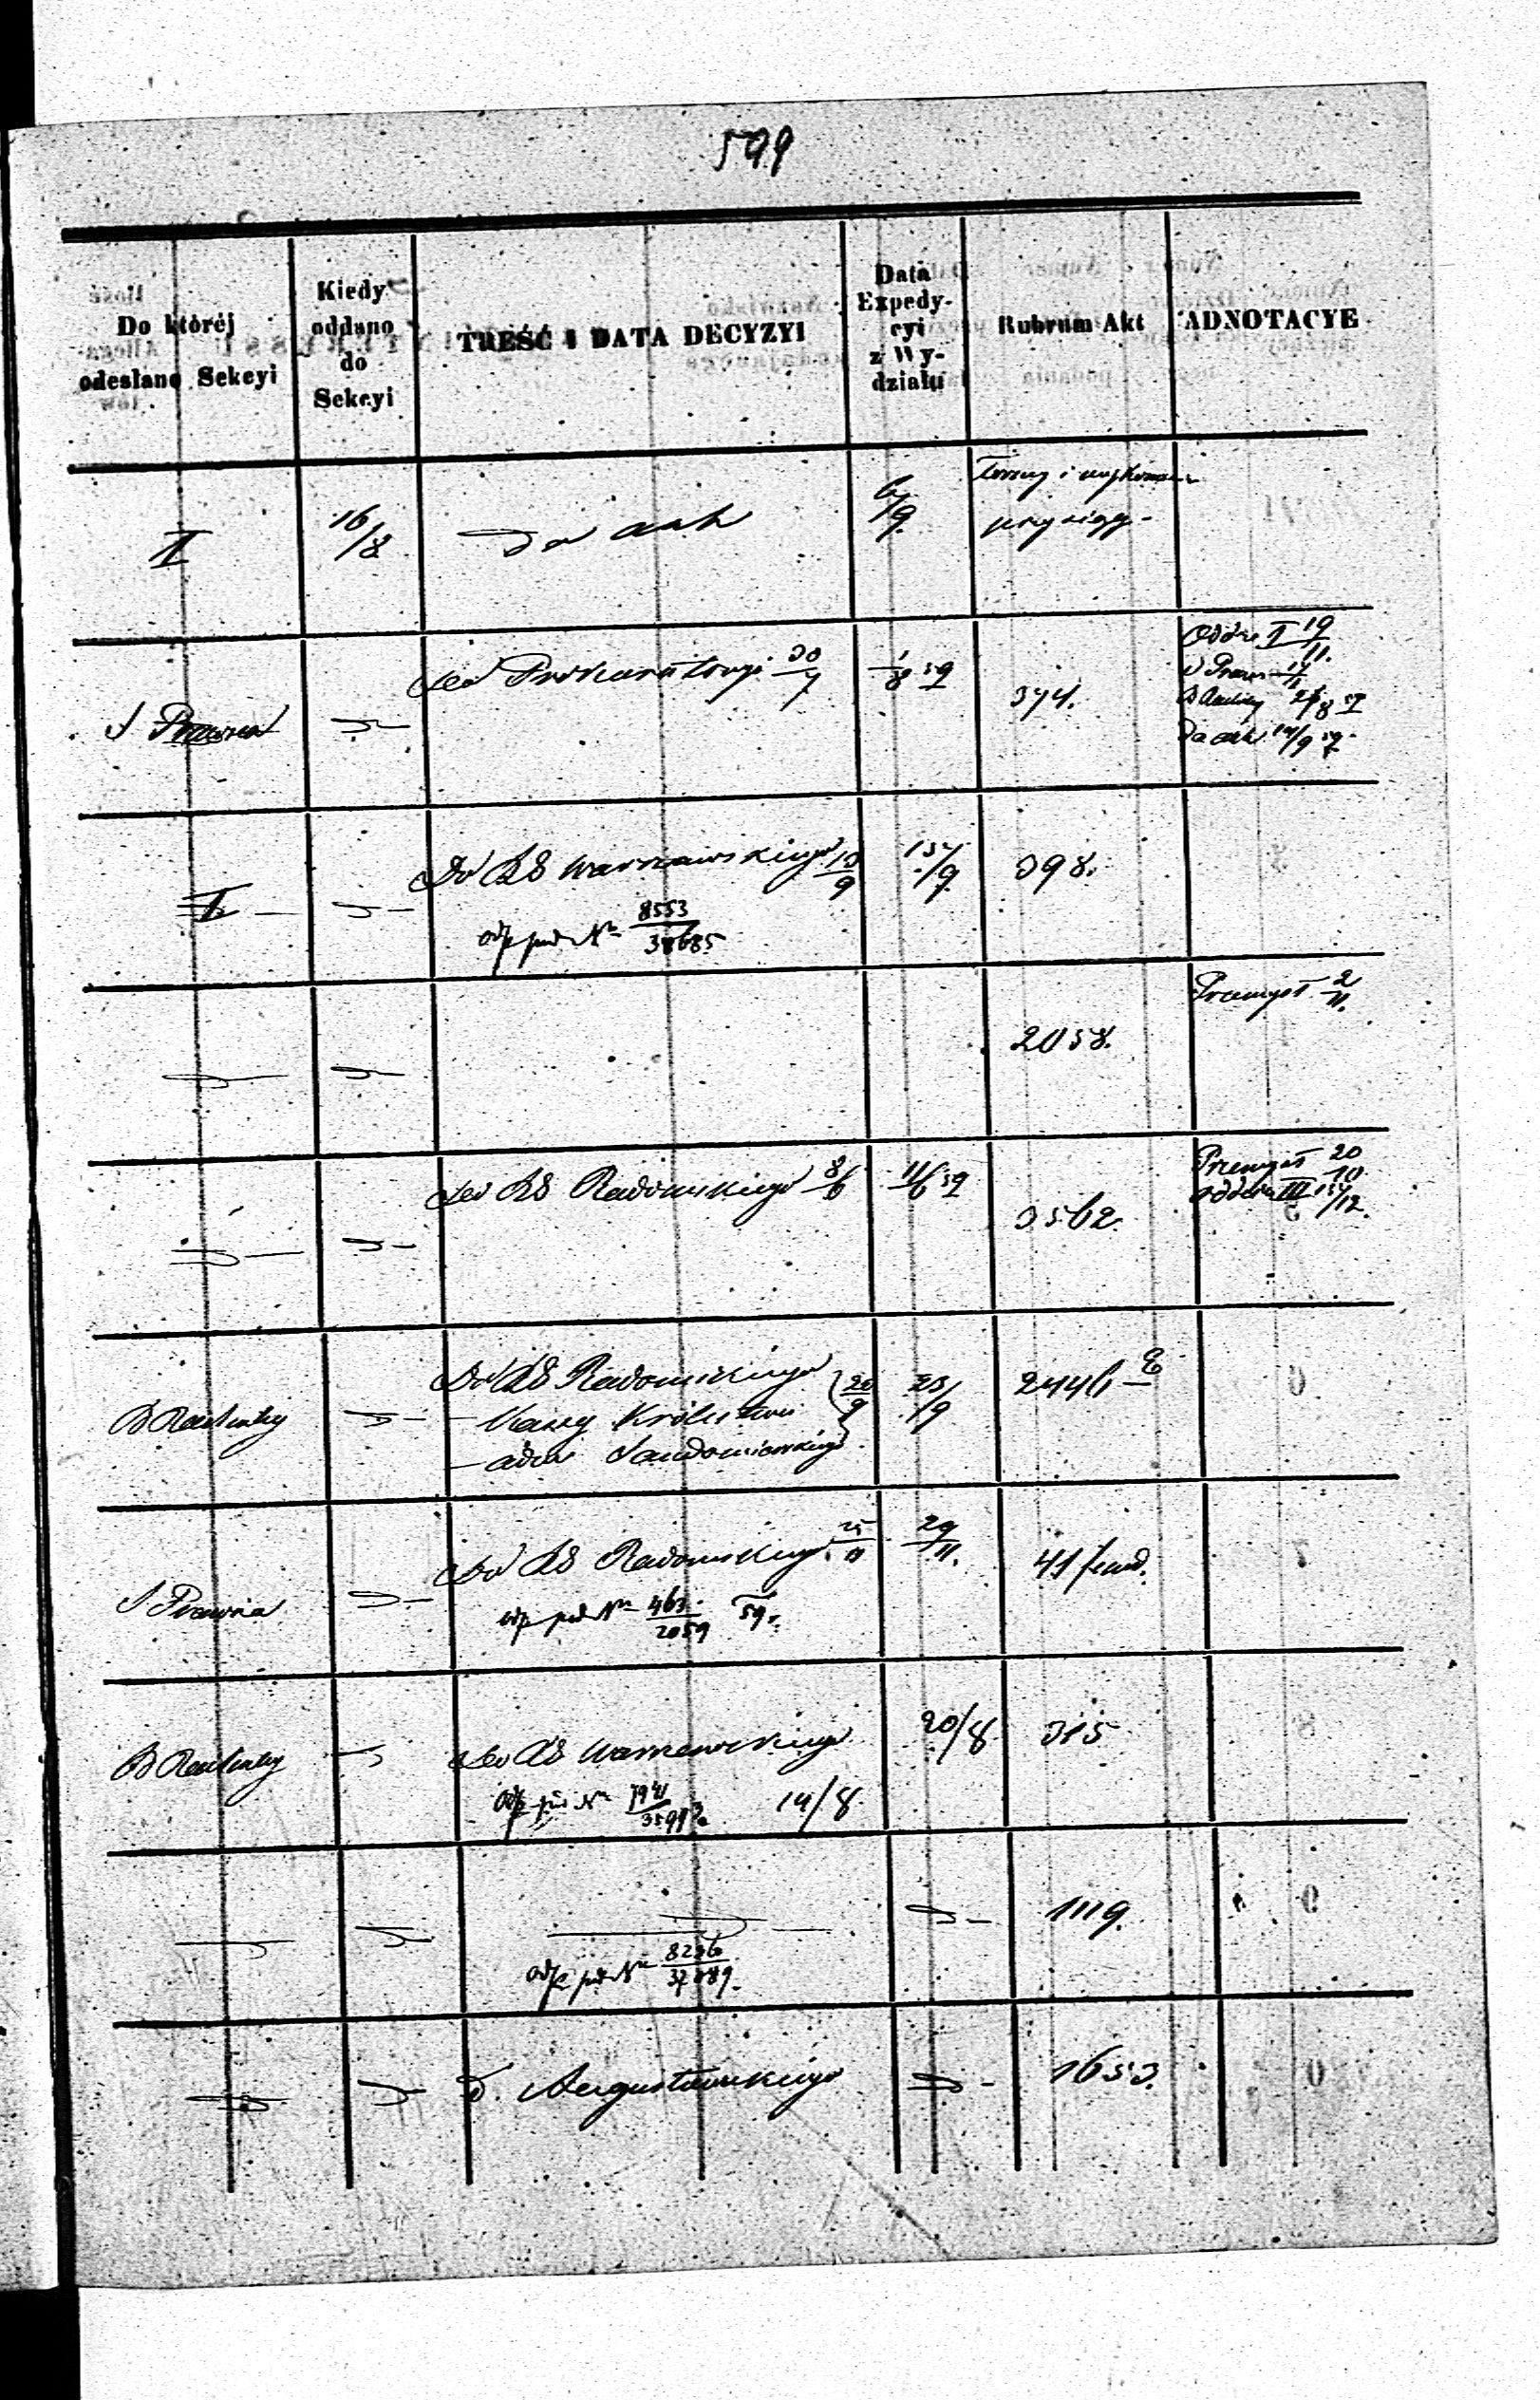 599
Do któréj odesłano Sekcyi
Kiedy oddano do Sekcyi
TREŚĆ I DATA DECYZYI
Data Expedycyi z Wydziału
Rubrum Akt
ADNOTACYE
II
16/8
Do akt
6/9
Formy i wykonanie
przysięgy
S Prawna
Do Prokuratoryi 30/7
1/8 59
374.
Oddz. I 19/11.
S Prawn
B Rachuby 26/8 59
Do akt 14/9 59
II
Do RG Warszawskiego 13/9
odp pod Nr 8553/38685
15/9
398.
2058.
Przemysł 2/11.
Do RG Radomskiego 8/6
11/6 59
3562.
Przemysł 20/10
Oddział III 15/12.
B Rachuby
Do RG Radomskiego
— Kassy Królestwa
— adm Sandomierskiego
20/9
23/9
2446
S Prawna
Do RG Radomskiego 25/11
odp pod Nr 463/2059 59 r.
29/11.
41 fund.
B Rachuby
Do RG Warszawskiego
odp pod Nr
14/8
20/8
315
odp pod Nr
1119.
D. Augustowskiego
1653.